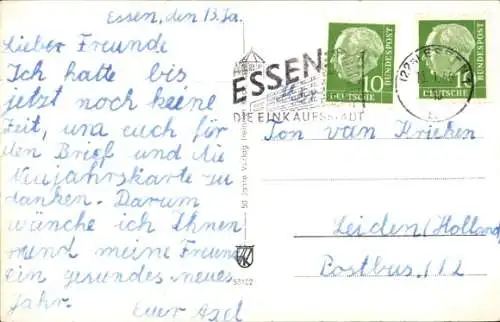 Essen, den 13. Ja.
Lieber Freunde
Ich hatte bis
jetzt noch keine
Zeit, um euch für
den Brief und die
Neujahrskarte zu
danken. Darum
wünche ich Ihnen
und meine Freund
ein gesundes neues
Jahr.
Euer Axel
ESSEN
DIE EINKAUFSSTADT
10
DEUTSCHE
BUNDESPOST
15
DEUTSCHE
BUNDESPOST
ESSEN
Ton van Krieken
Leiden/Holland
Postbus 112
50 Jahre Verlag